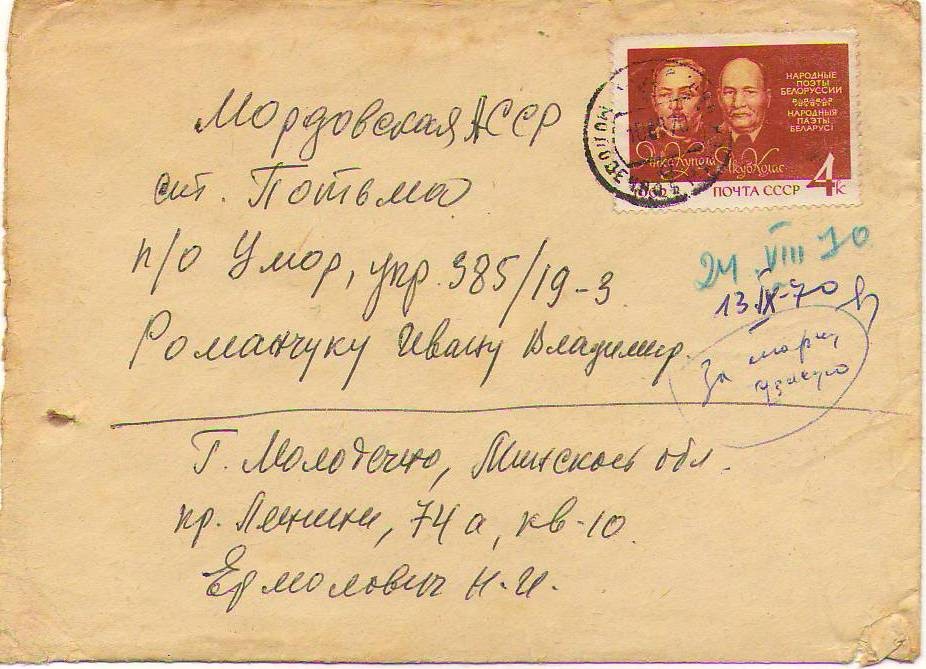 НАРОДНЫЕ
ПОЭТЫ
БЕЛОРУССИИ
НАРОДНЫЯ
ПАЭТЫ
БЕЛАРУСІ
Янка Купала Якуб Колас
ПОЧТА СССР 4к
Мордовская АССР
ст. Потьма
п/о Умор, учр. 385/19-3
Романчуку Ивану Владимир
24 VIII 70
13.IX-70
За марку
Г. Молодечно, Минской обл.
пр. Ленина, 74 а, кв-10.
Ермолович Н.И.